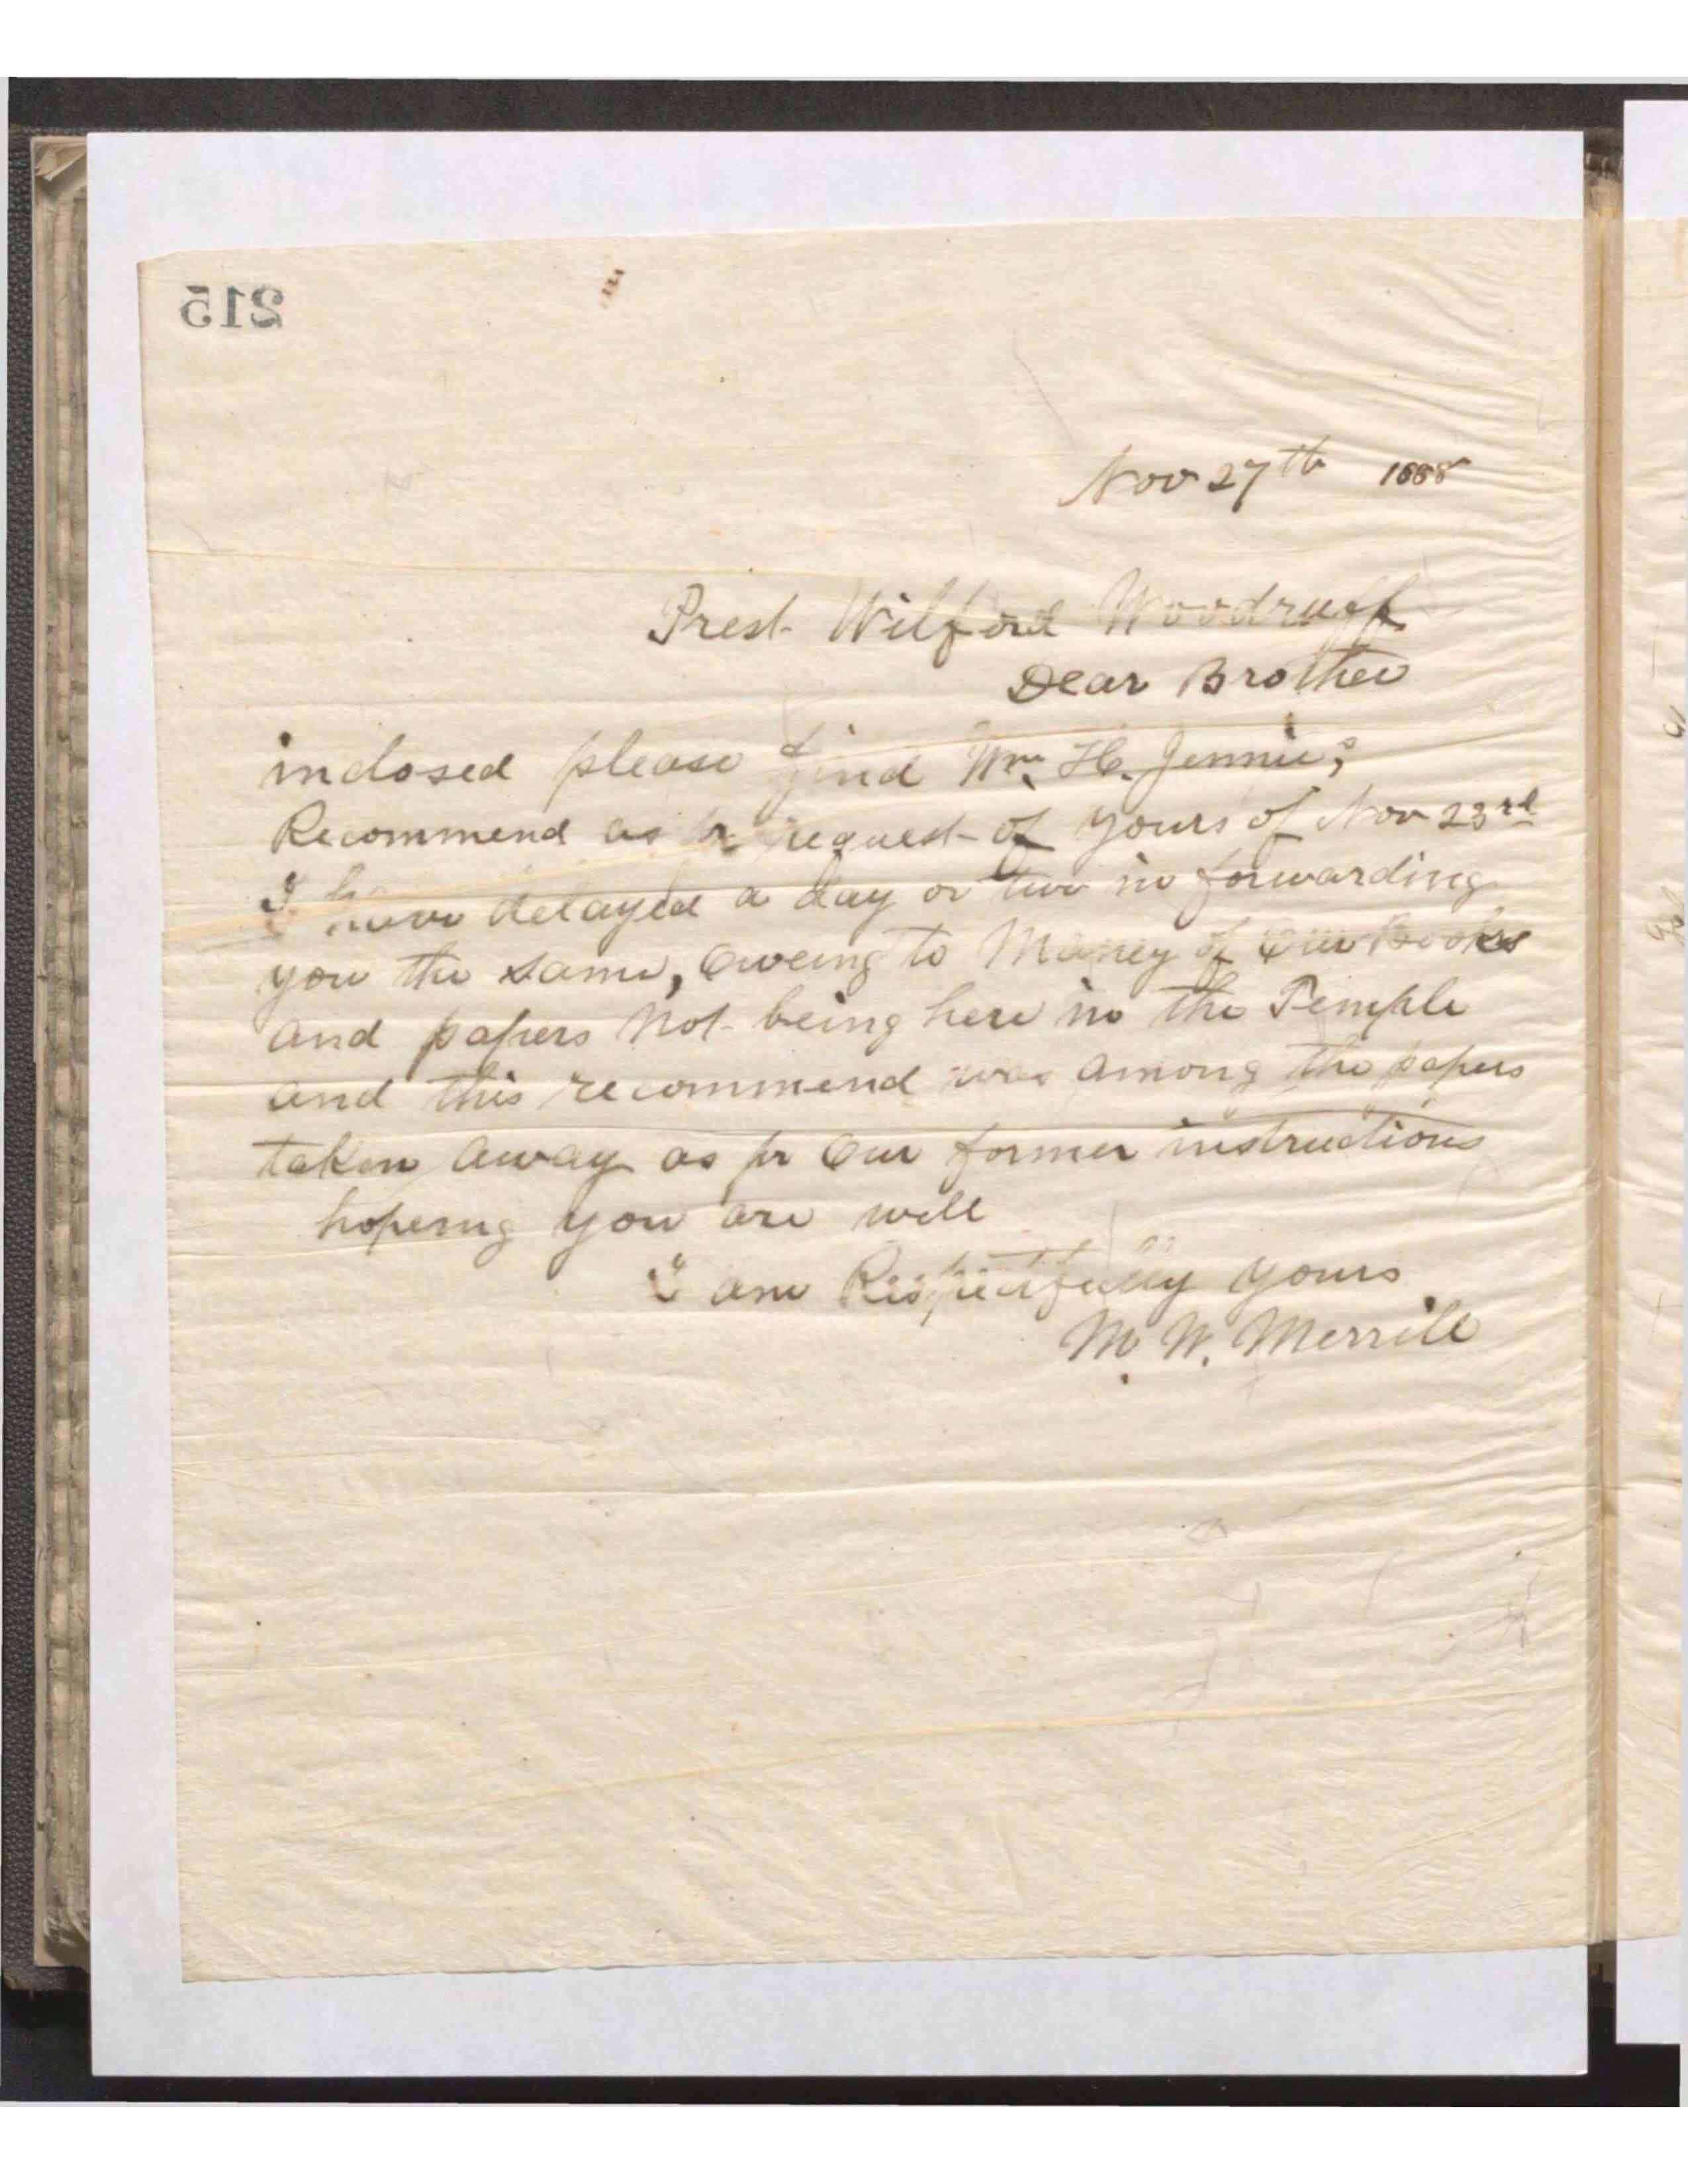 215
Nov 27th 1888
Prest. Wilford Woodruff
Dear Brother
inclosed please find Wm. H.
Recommend as pr request of yours of Nov 23rd
I have delayed a day or two in forwarding
you the same, Oweing to Maney of Our Books
and papers Not being here in the Temple
and this recommend was among the papers
taken away as pr Our former instructions
hopeing you are well
I am Respectfully yours
M. W. Merrill